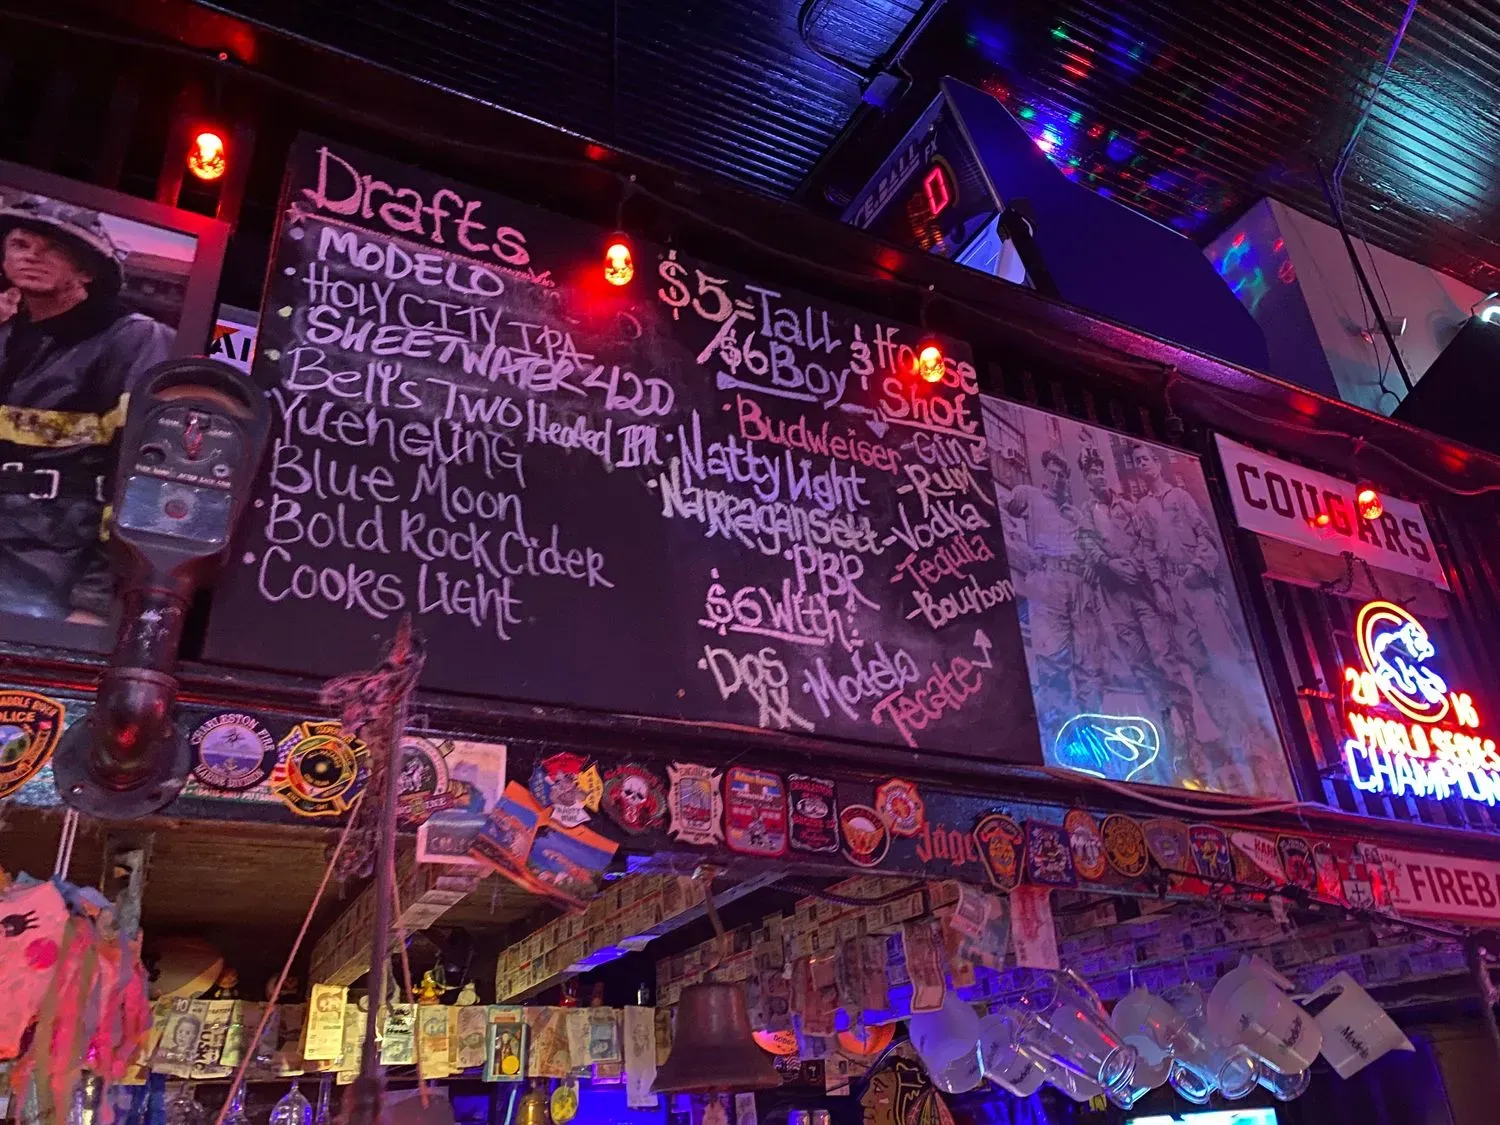 Drafts
MODELO
HOLY CITY IPA
SWEETWATER 420
Bell's Two Hearted IPA
Yuengling
Blue Moon
Bold Rock Cider
Coors Light
$5= Tall
/$6 Boy & House Shot
Budweiser
Natty Light
Narragansett
PBR
$6 With:
Dos XX
Modelo
Tecate
- Gin
- Rum
- Vodka
- Tequila
- Bourbon
0
FX
COUGARS
2016
WORLD SERIES
CHAMPION
POLICE
CHARLESTON FIRE
Jäge
FIREBA
Modelo
Modelo